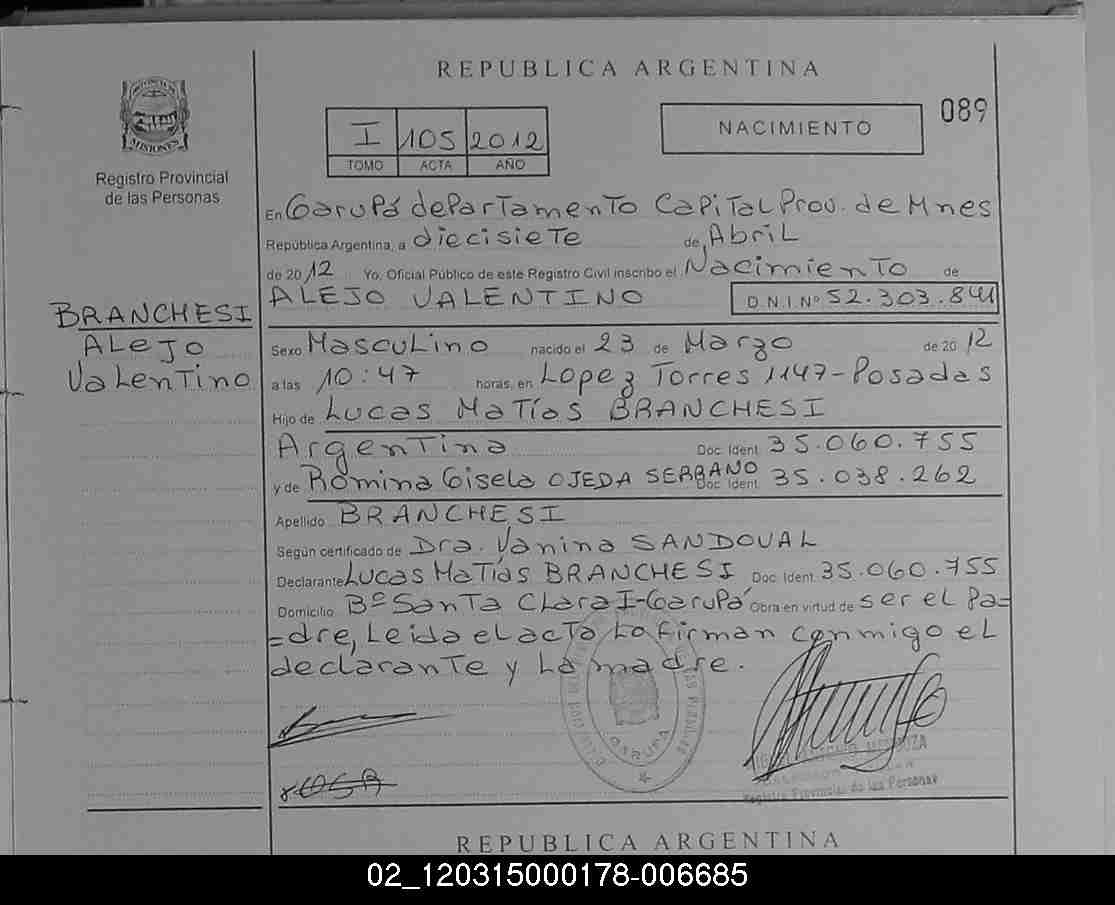 REPUBLICA ARGENTINA
PROVINCIA DE
MISIONES
Registro Provincial
de las Personas
I 105 2012
TOMO ACTA AÑO
NACIMIENTO
089
En Garupá departamento Capital Prov. de Mnes
República Argentina, a diecisiete de Abril
de 2012 Yo, Oficial Público de este Registro Civil inscribo el Nacimiento de
ALEJO VALENTINO D.N.I.Nº 52.303.841
BRANCHESI
ALeJo
Valentino
Sexo Masculino nacido el 23 de Marzo de 2012
a las 10:47 horas, en Lopez Torres 1147-Posadas
Hijo de Lucas Matías BRANCHESI
Argentina Doc. Ident. 35.060.755
y de Romina Gisela OJEDA SERRANO Doc. Ident. 35.038.262
Apellido BRANCHESI
Según certificado de Dra. Vanina SANDOVAL
Declarante Lucas Matías BRANCHESI Doc. Ident. 35.060.755
Domicilio Bº Santa Clara I-Garupá Obra en virtud de ser el Pa=
=dre, Leida el acta La firman conmigo el
declarante y La madre.
GARUPA
Registro Provincial de las Personas
REPUBLICA ARGENTINA
02_120315000178-006685